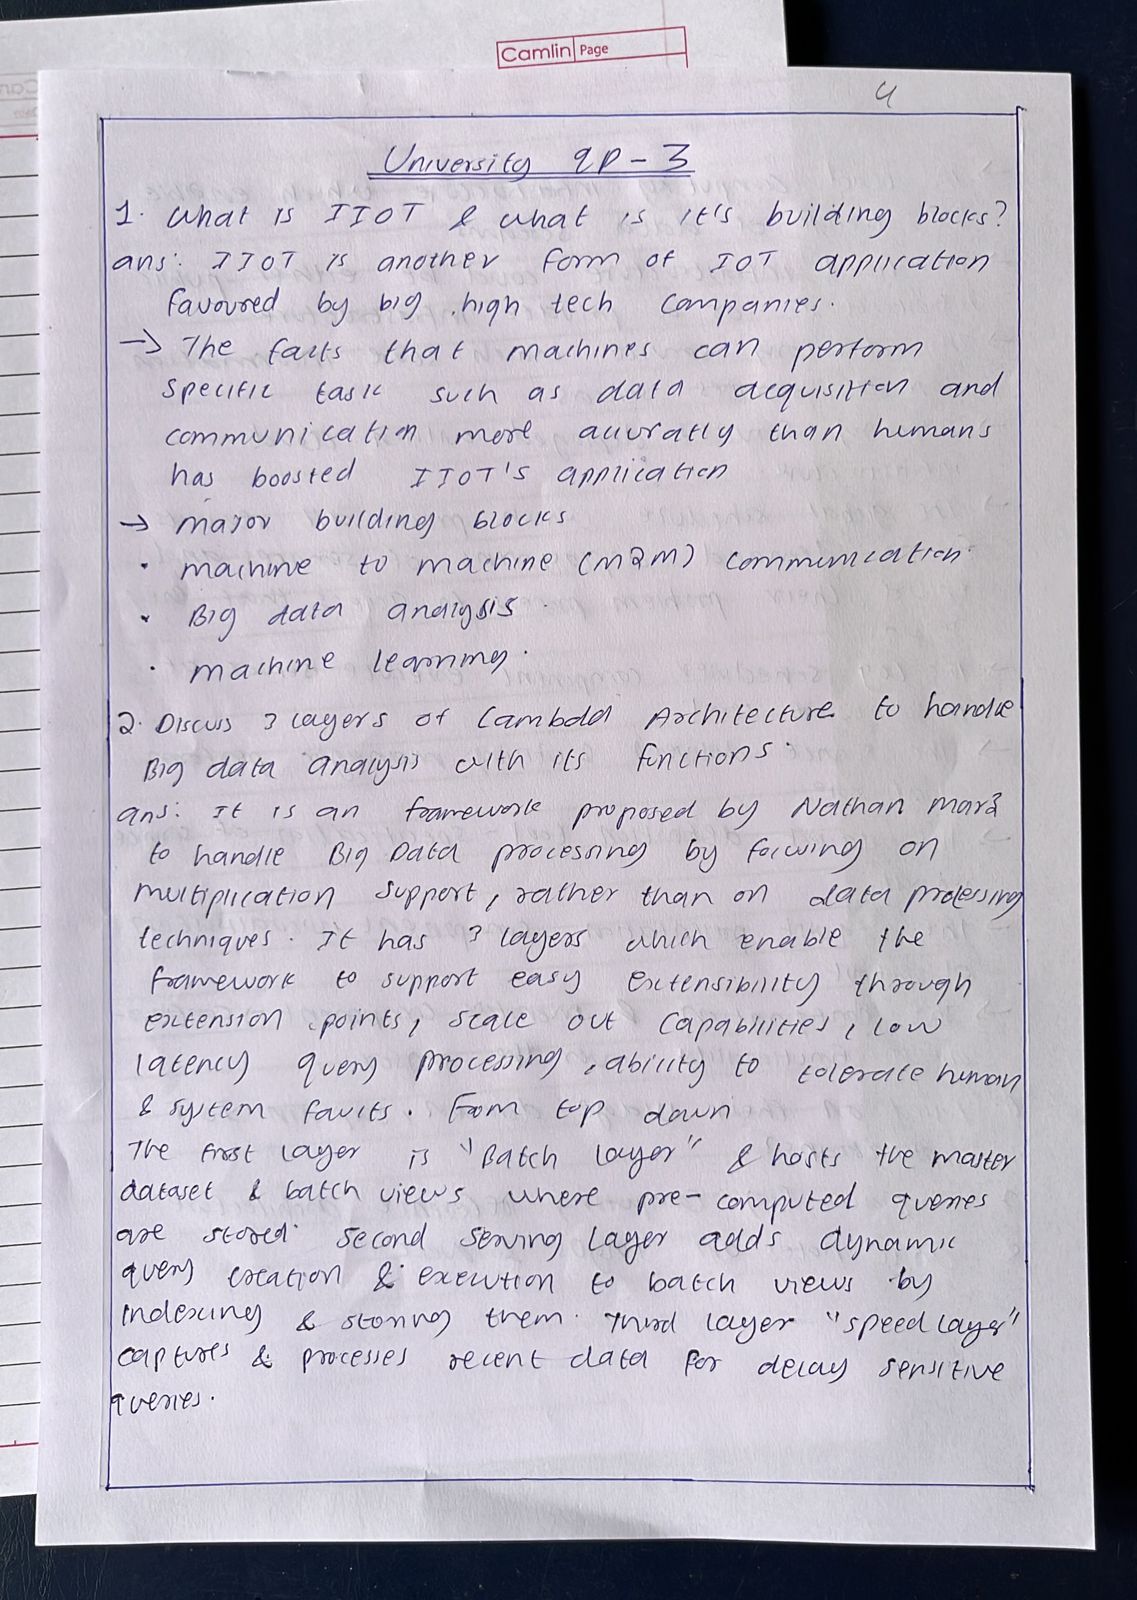 Camlin Page
4
University QP - 3
1. What is IIOT & what is it's building blocks?
ans: IIOT is another form of IOT application
favoured by big, high tech companies.
→ The facts that machines can perform
specific task such as data acquisition and
communication more accuratly than humans
has boosted IIOT's application
→ major building blocks
• machine to machine (M2M) communication.
• Big data analysis.
• machine learning.
2. Discuss 3 layers of Lambda Architecture to handle
Big data analysis with its functions.
ans: It is an framework proposed by Nathan Marz
to handle Big Data processing by focusing on
multiplication support, rather than on data processing
techniques. It has 3 layers which enable the
framework to support easy extensibility through
extension points, scale out capabilities, low
latency query processing, ability to tolerate human
& system faults. From top down
The first layer is "Batch layer" & hosts the master
dataset & batch views where pre-computed queries
are stored. Second serving layer adds dynamic
query creation & execution to batch views by
indexing & storing them. Third layer "speed layer"
captures & processes recent data for delay sensitive
queries.